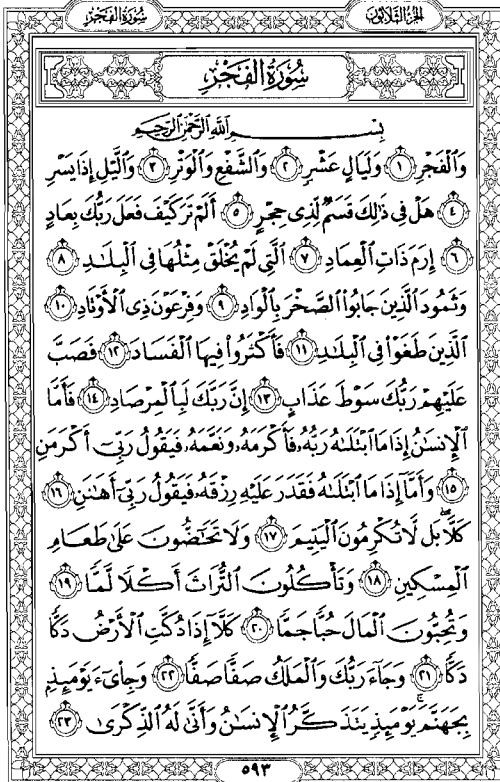 سُورَةُ الْفَجْرِ الجُزءُ الثَّلاثُونَ
سُورَةُ الْفَجْرِ
بِسْمِ اللَّهِ الرَّحْمَٰنِ الرَّحِيمِ
وَالْفَجْرِ ١ وَلَيَالٍ عَشْرٍ ٢ وَالشَّفْعِ وَالْوَتْرِ ٣ وَالَّيْلِ إِذَا يَسْرِ
٤ هَلْ فِى ذَٰلِكَ قَسَمٌ لِّذِى حِجْرٍ ٥ أَلَمْ تَرَ كَيْفَ فَعَلَ رَبُّكَ بِعَادٍ
٦ إِرَمَ ذَاتِ الْعِمَادِ ٧ الَّتِى لَمْ يُخْلَقْ مِثْلُهَا فِى الْبِلَٰدِ ٨
وَثَمُودَ الَّذِينَ جَابُوا الصَّخْرَ بِالْوَادِ ٩ وَفِرْعَوْنَ ذِى الْأَوْتَادِ ١٠
الَّذِينَ طَغَوْا فِى الْبِلَٰدِ ١١ فَأَكْثَرُوا فِيهَا الْفَسَادَ ١٢ فَصَبَّ
عَلَيْهِمْ رَبُّكَ سَوْطَ عَذَابٍ ١٣ إِنَّ رَبَّكَ لَبِالْمِرْصَادِ ١٤ فَأَمَّا
الْإِنسَٰنُ إِذَا مَا ابْتَلَىٰهُ رَبُّهُ فَأَكْرَمَهُ وَنَعَّمَهُ فَيَقُولُ رَبِّى أَكْرَمَنِ
١٥ وَأَمَّا إِذَا مَا ابْتَلَىٰهُ فَقَدَرَ عَلَيْهِ رِزْقَهُ فَيَقُولُ رَبِّى أَهَٰنَنِ ١٦
كَلَّا ۖ بَل لَّا تُكْرِمُونَ الْيَتِيمَ ١٧ وَلَا تَحَٰضُّونَ عَلَىٰ طَعَامِ
الْمِسْكِينِ ١٨ وَتَأْكُلُونَ التُّرَاثَ أَكْلًا لَّمًّا ١٩
وَتُحِبُّونَ الْمَالَ حُبًّا جَمًّا ٢٠ كَلَّا إِذَا دُكَّتِ الْأَرْضُ دَكًّا
دَكًّا ٢١ وَجَاءَ رَبُّكَ وَالْمَلَكُ صَفًّا صَفًّا ٢٢ وَجِا۟ىءَ يَوْمَئِذٍ
بِجَهَنَّمَ ۚ يَوْمَئِذٍ يَتَذَكَّرُ الْإِنسَٰنُ وَأَنَّىٰ لَهُ الذِّكْرَىٰ ٢٣
٥٩٣